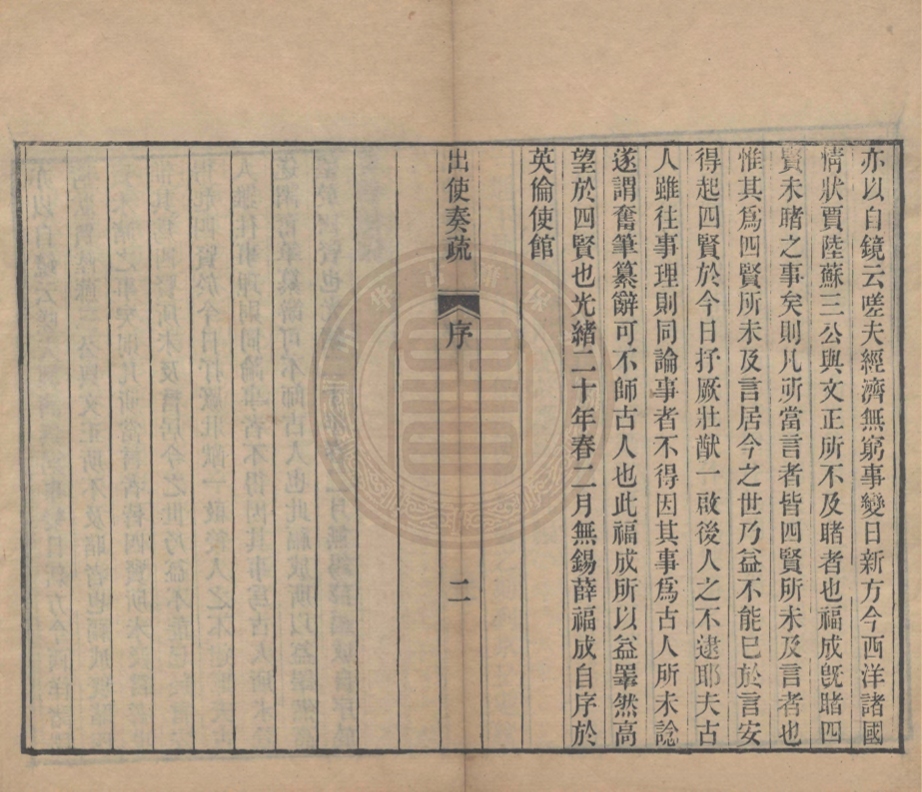 亦以自鏡云嗟夫經濟無窮事變日新方今西洋諸國
情狀賈陸蘇三公與文正所不及睹者也福成既睹四
賢未睹之事矣則凡所當言者皆四賢所未及言者也
惟其為四賢所未及言居今之世乃益不能已於言安
得起四賢於今日抒厥壯猷一啟後人之不逮耶夫古
人雖往事理則同論事者不得因其事為古人所未諗
遂謂奮筆纂辭可不師古人也此福成所以益睪然高
望於四賢也光緒二十年春二月無錫薛福成自序於
英倫使館
出使奏疏 序 二